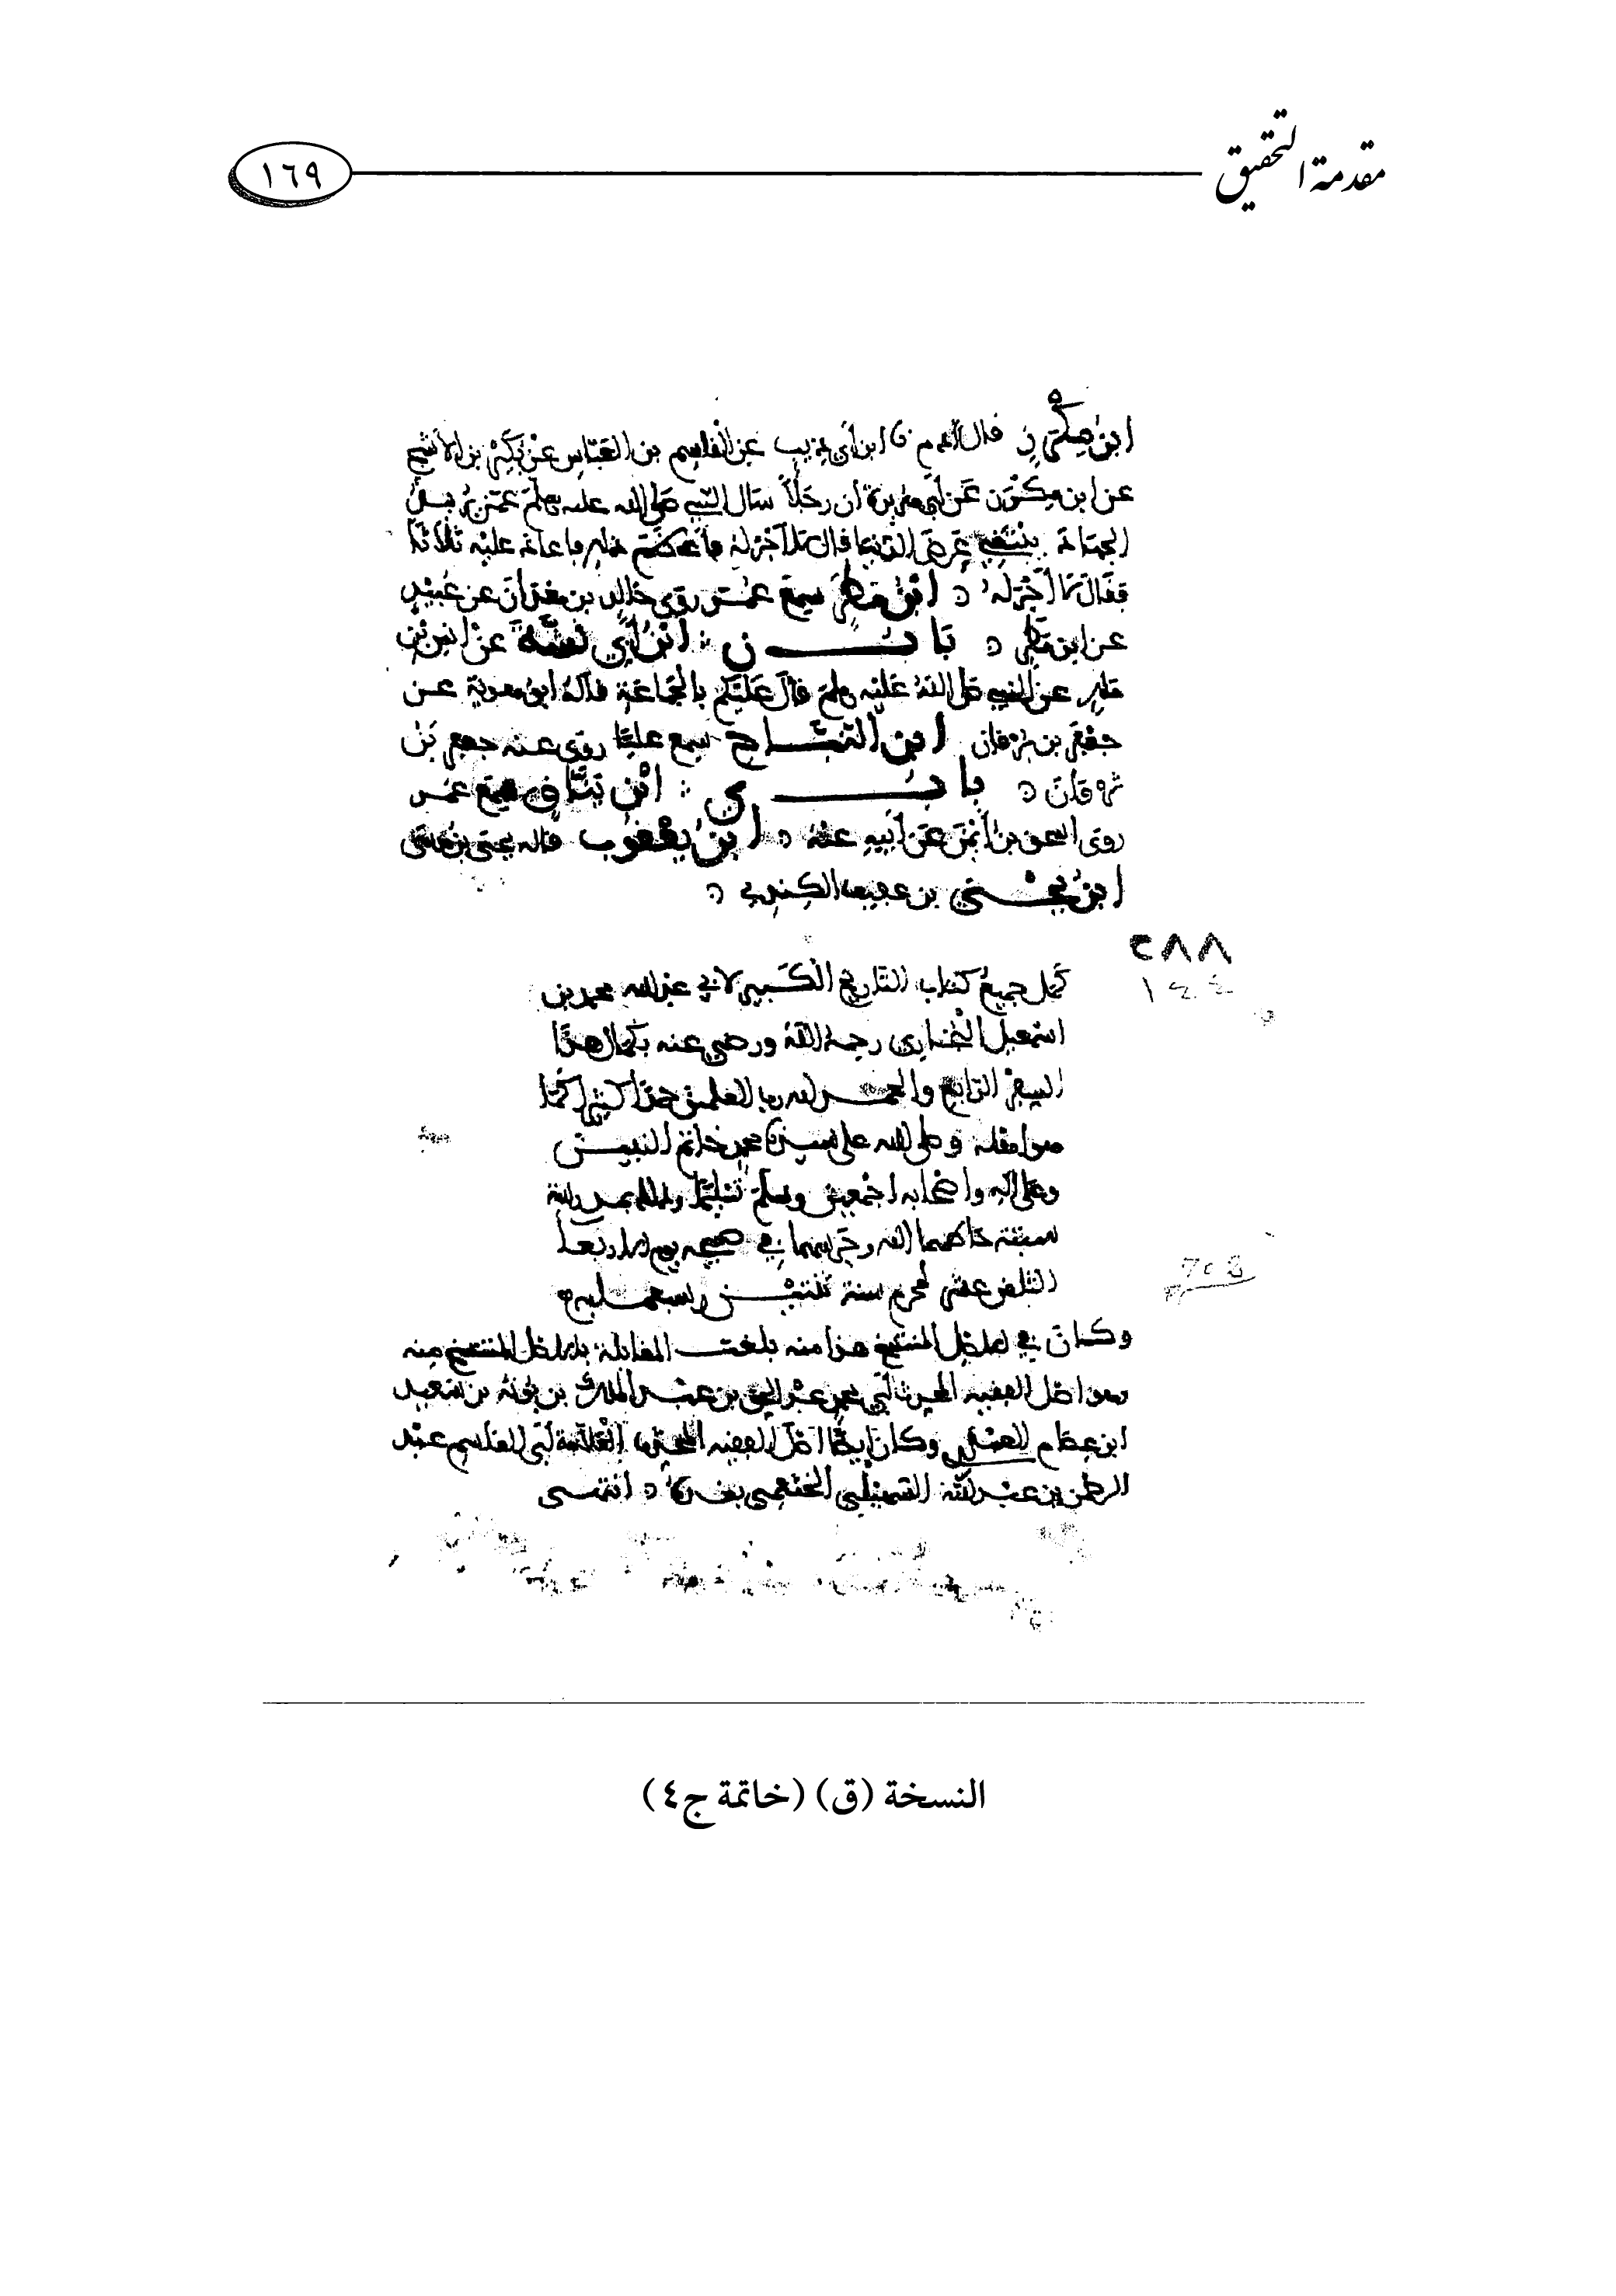 مقدمة التحقيق
١٦٩
ابن مكرز قال آدم نا ابن أبي ذيب عن القاسم بن العباس عن بكير بن الأشج
عن ابن مكرز عن أبي هريرة أن رجلا سأل النبي صلى الله عليه وسلم عمن يريد
الجهاد يبتغي عرض الدنيا قال لا أجر له عليه ثلاثا
فقال لا أجر له ابن سمع عمر روى خالد بن معدان عن عبيد
عن ابن باب ن ابن أبي نشبة عن أنس بن
عن النبي صلى الله عليه وسلم قال عليكم بالجماعة قاله أبو معوية عن
جعفر بن برقان ابن النباح سمع عليا روى عنه جعفر بن
برقان باب ي ابن سمع عمر
روى اسحق بن عن أبيه عنه ابن يعقوب قاله يحيى بن
ابن يحيى بن عفيف الكندي
٢٨٨
كمل جميع كتاب التاريخ الكبير لأبي عبد الله محمد بن
اسمعيل البخاري رحمه الله ورضي عنه بكمال هذا
السفر الرابع والحمد لله رب العلمين حمدا كثيرا كما
هو أهله وصلى الله على سيدنا محمد خاتم النبيين
وعلى آله وأصحابه أجمعين وسلم تسليما وذلك بمدينة
سبتة حاطها الله وحرسها في صبيحة يوم الأربعا
الثلث عشر لمحرم سنة
وكان في الأصل المنتسخ هذا منه بلغت المقابلة بالأصل المنتسخ منه
وهو أصل الفقيه المحدث أبي محمد عبد الحق بن عبد الملك بن بونه بن سعيد
ابن عصام العبدري وكان أيضا أصل الفقيه العلامة أبي القاسم عبد
الرحمن بن عبد الله السهيلي الخثعمي انتهى
النسخة (ق) (خاتمة ج٤)